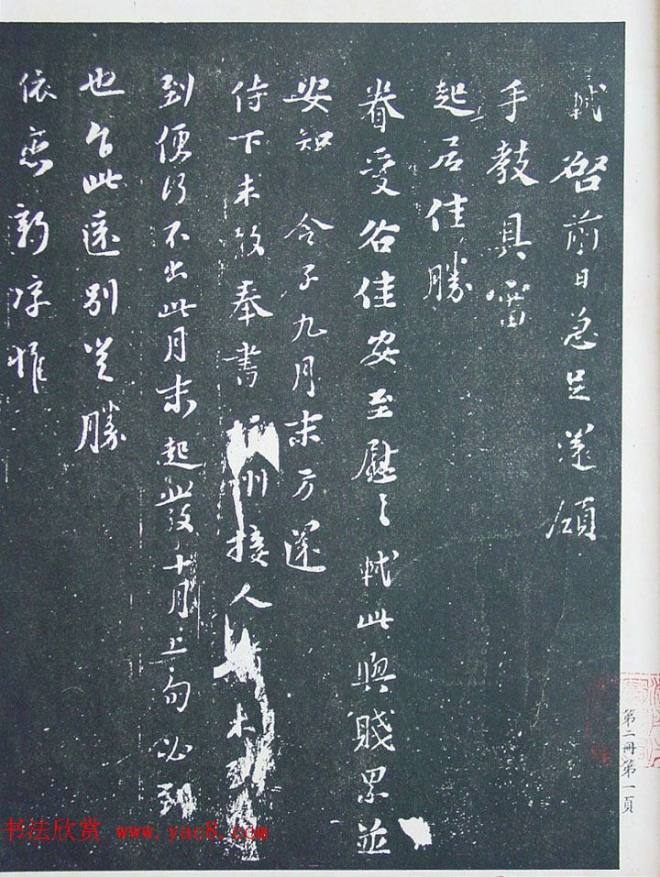 軾啓前日急足還領
手教具審
起居佳勝
眷愛各佳安至慰々軾此與賤累並
安知 令子九月末方還
侍下未敢奉書 州接人未到
到便行不出此月末起發十月上旬必到
也乍此遠別豈勝
依戀新涼惟
第二冊第一頁
书法欣赏 www.yac8.com